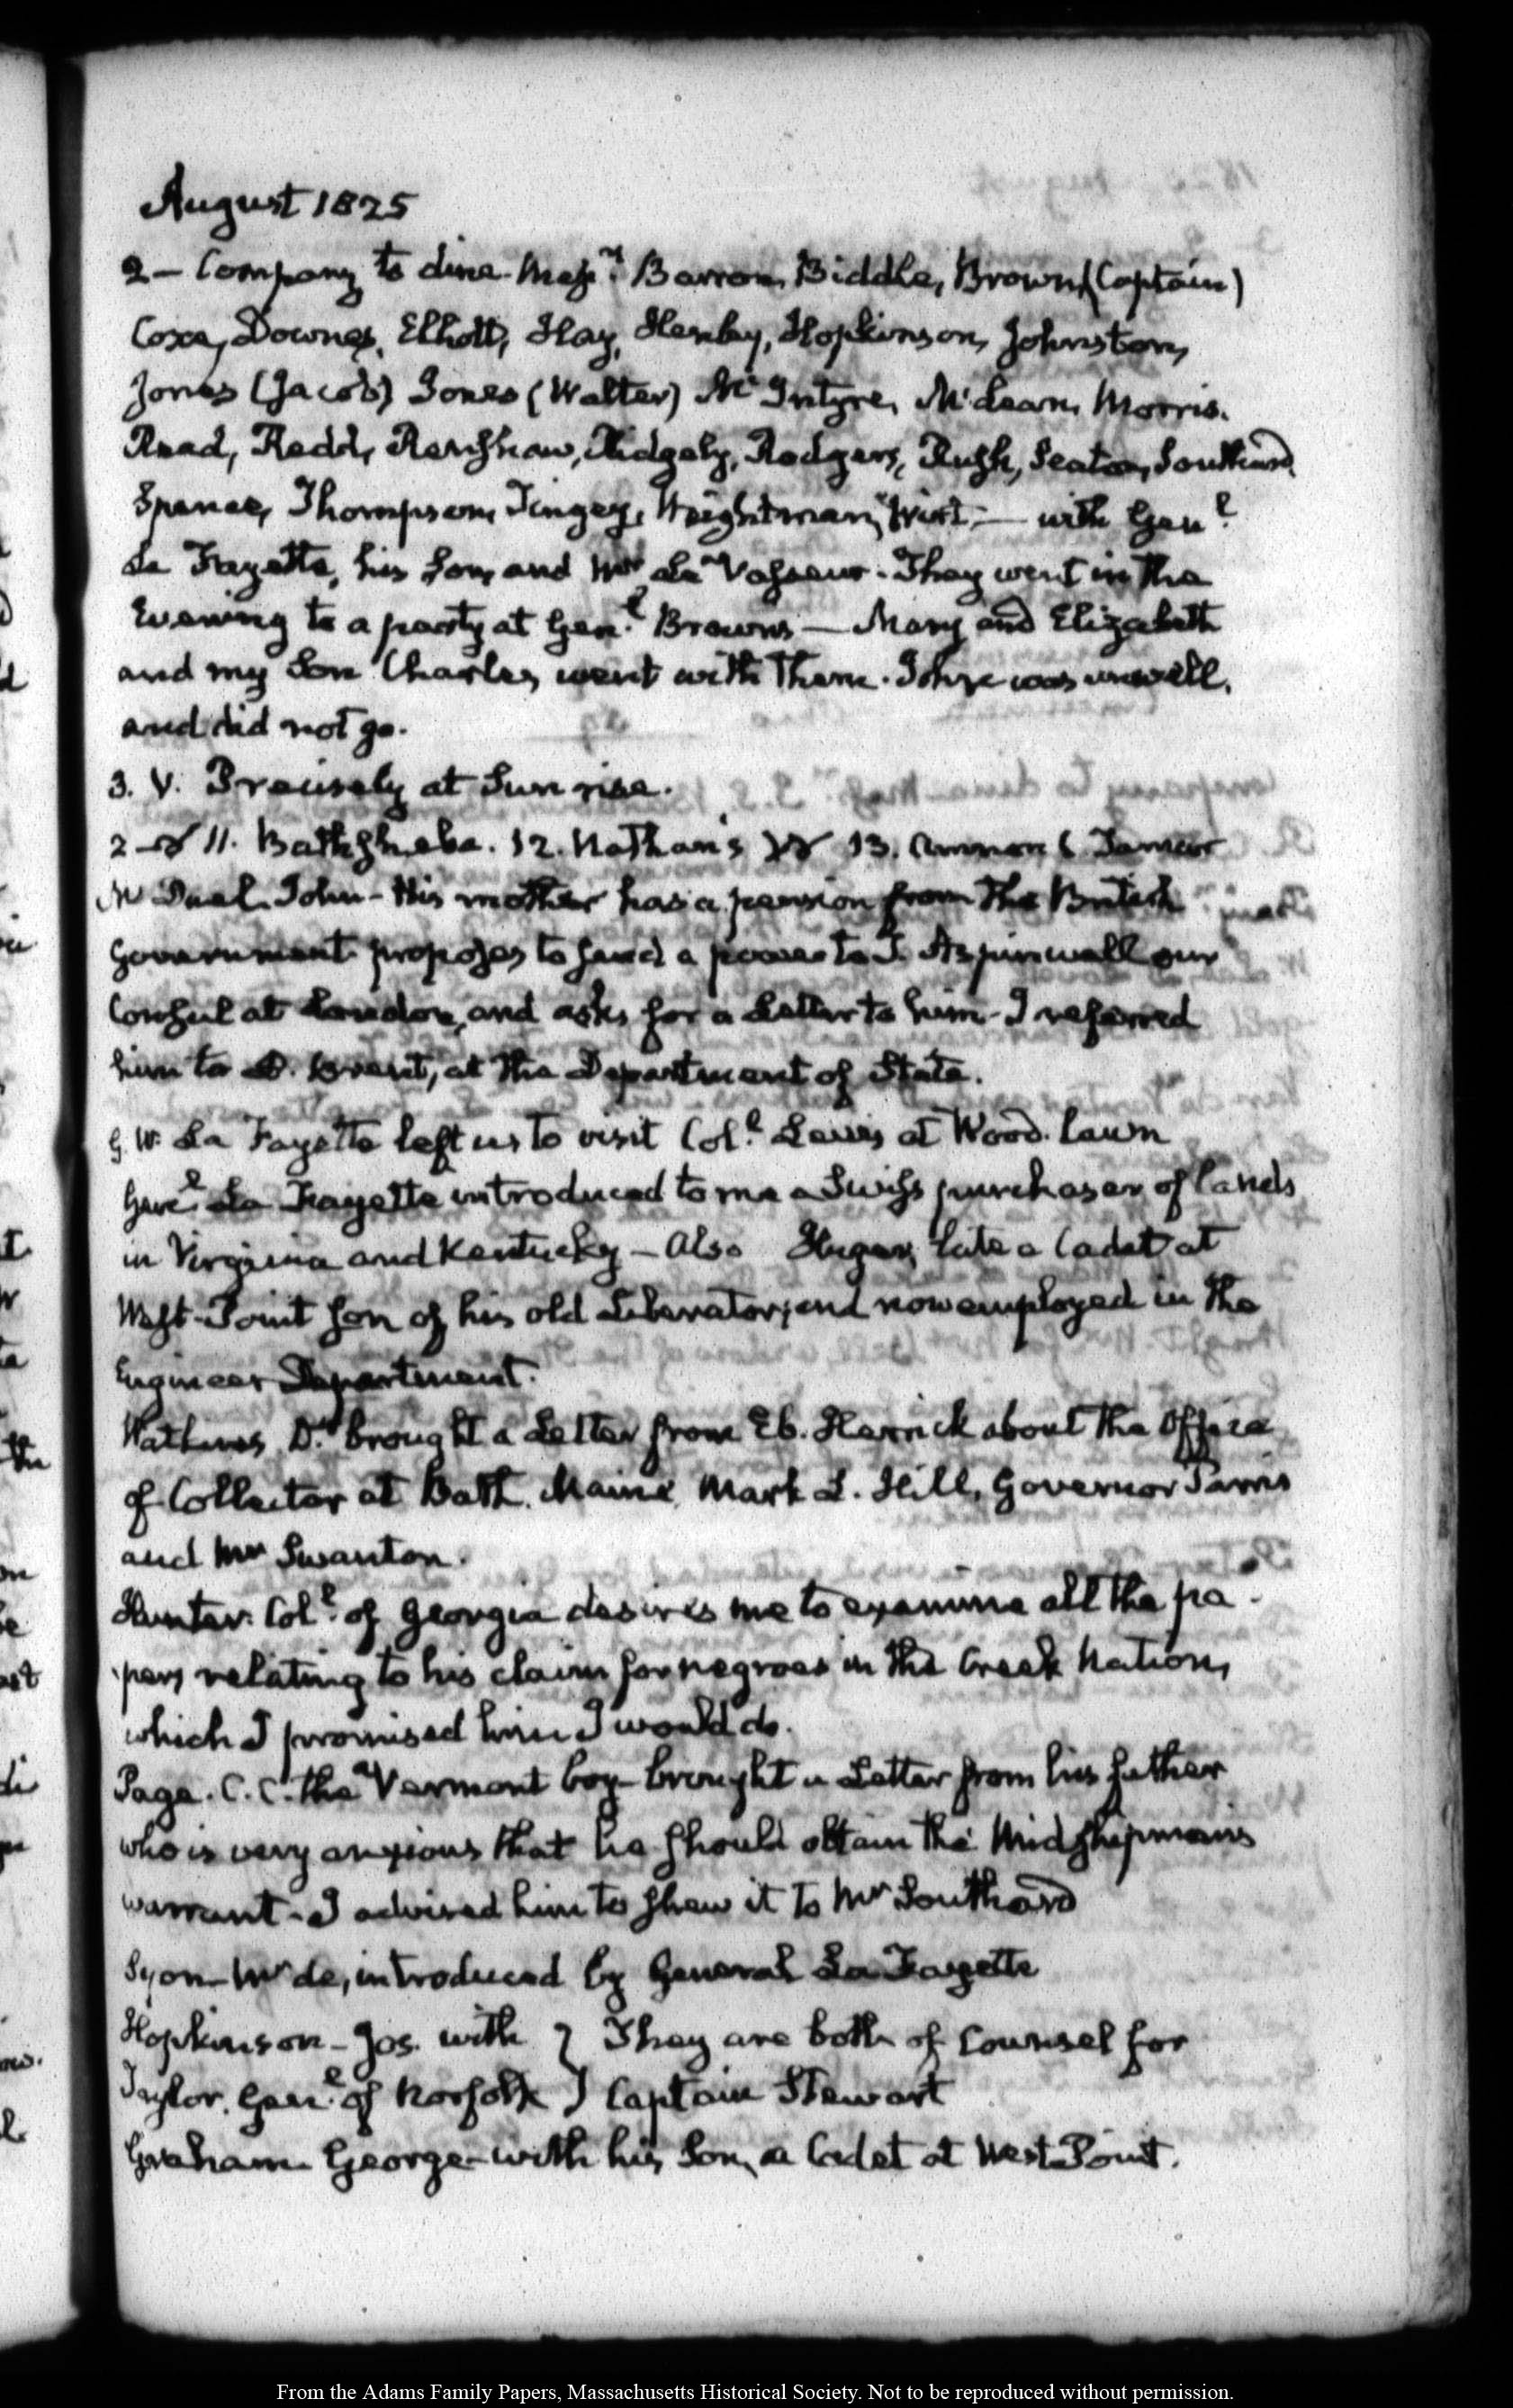 August 1825
2 — Company to dine. Mess.rs Barron, Biddle, Brown, (Captain)
Coxe, Downes, Elliott, Hay, Henley, Hopkinson, Johnston,
Jones (Jacob) Jones (Walter) Mc Intyre, McLean, Morris.
Read, Redd, Renshaw, Ridgely, Rodgers, Rush, Seaton, Southard,
Spence, Thompson, Tingey, Weightman, Wirt, — with Gen.l
La Fayette, his Son, and Mr Le Vasseur. They went in the
Evening to a party at Gen.l Browns — Mary and Elizabeth
and my Son Charles, went with them. John was unwell,
and did not go.
3. V. Precisely at Sun rise.
2 11. Bathsheba. 12. Nathan's 13. Amnon & Tamar
John - His mother has a pension from the British
Government proposes to send a power to Aspinwall our
Consul at London, and asks for a Letter to him - I referred
him to D. Brent, at the Department of State.
G. W. La Fayette left us to visit Col.l Lewis at Wood. lawn
Gen.l La Fayette introduced to me a Swiss purchaser of lands
in Virginia and Kentucky — Also Huger, late a Cadet at
West-Point son of his old Liberator; and now employed in the
Engineer Department.
Watkins, D.r brought a Letter from Eb. Herrick about the Office
of Collector at Bath, Maine, Mark L. Hill, Governor Parris
and Mr Swanton.
Hunter. Col.l of Georgia desires me to examine all the pa-
pers relating to his claim for negroes in the Creek Nation,
which I promised him I would do.
Page. C. C. the Vermont boy - brought a Letter from his father
who is very anxious that he should obtain the Midshipman's
warrant - I advised him to shew it to Mr Southard
Syon - Mr de, introduced by General La Fayette
Hopkinson - Jos. with } They are both of Counsel for
Taylor. Gen.l of Norfolk } Captain Stewart
Graham George - with his Son, a Cadet at West Point.
From the Adams Family Papers, Massachusetts Historical Society. Not to be reproduced without permission.